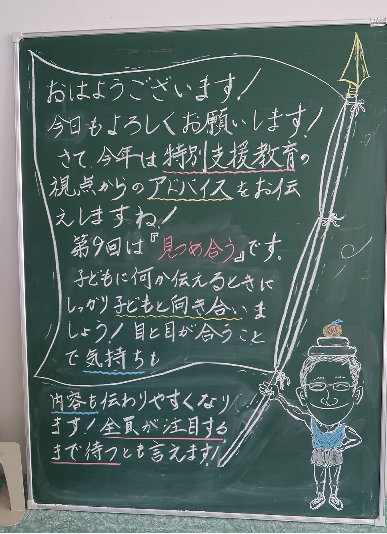 おはようございます!
今日もよろしくお願いします!
さて、今年は特別支援教育の
視点からのアドバイスをお伝
えしますね!
第9回は『見つめ合う』です。
子どもに何か伝えるときに
しっかり子どもと向き合いま
しょう!目と目が合うこと
で気持ちも
内容も伝わりやすくなり
ます!全員が注目する
まで待つとも言えます!